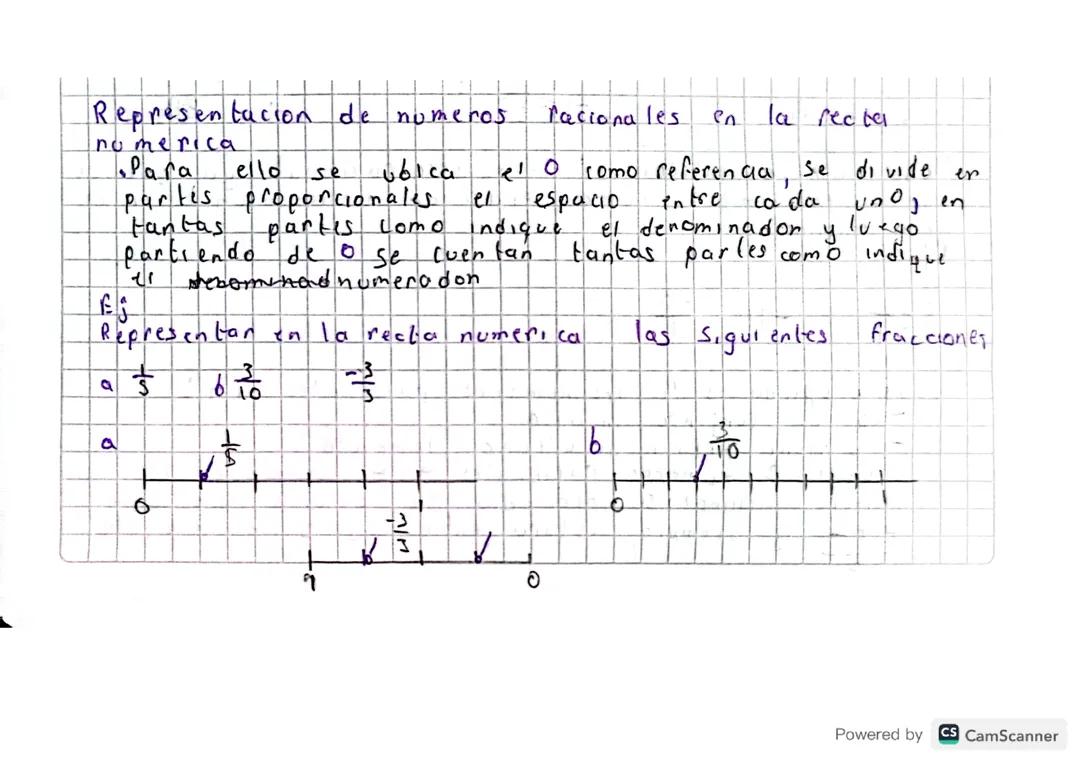 Representacion de numeros racionales en la recta
numerica
.Para ello se ubica el 0 como referencia, se divide en
partes proporcionales el espacio entre cada uno, en
tantas partes como indique el denominador y luego
partiendo de 0 se cuentan tantas partes como indique
el numerador
Ej
Representar en la recta numerica las siguientes fracciones
a 1/5 b 3/10 -3/
a 1/5 b 3/10
0 1 0 1
-3/
0
Powered by CS CamScanner